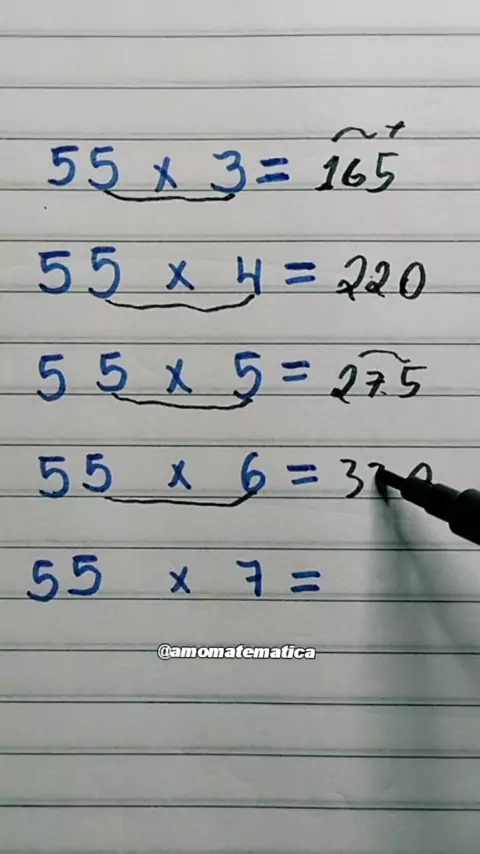 55 x 3 = 165
55 x 4 = 220
55 x 5 = 275
55 x 6 = 330
55 x 7 =
@amomatematica